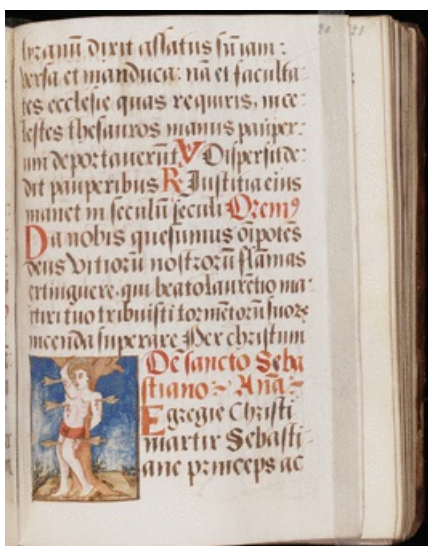 tyranū dixit assatus sū iam:
versa et manduca: nā et faculta
tes ecclesie quas requiris, in ce
lestes thesauros manus pauper:
um deportauerūt V Dispersit de:
dit pauperibus R Justitia eius
manet in seculū seculi Oremꝰ
Da nobis quesumus oīpotēs
deus vitiorū nostrorū flāmas
extinguere. qui beato laurētio ma:
rtiri tuo tribuisti tormētorū suorꝫ
incendia superare Per christum
De sancto Seba
stiano:~ Anā:~
Egregie Christi
martir Sebasti:
ane princeps ac
20 21